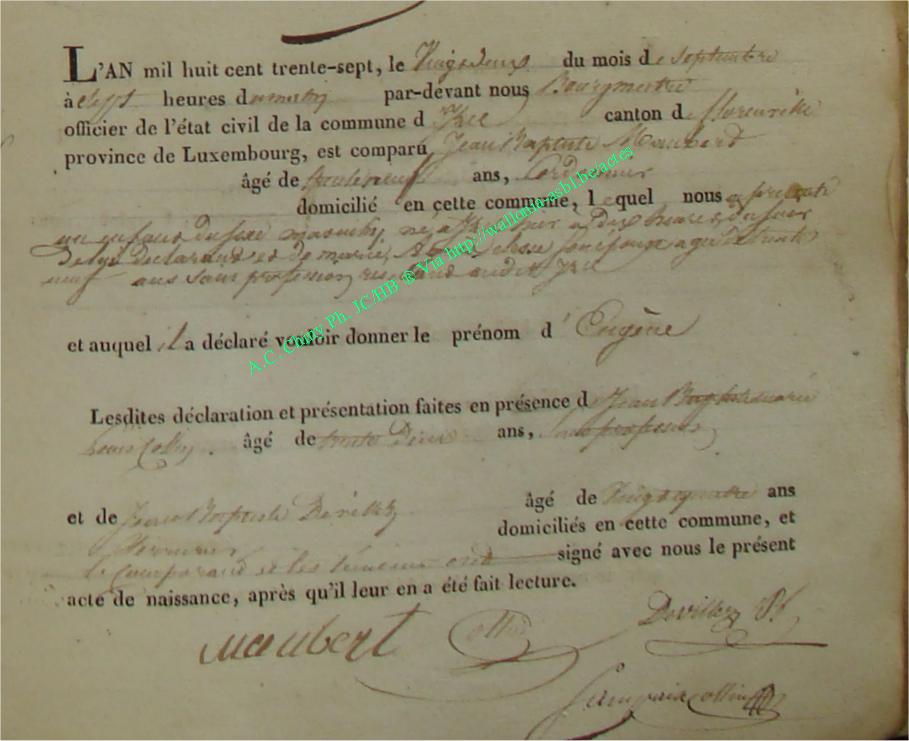 L'AN mil huit cent trente-sept, le Vingt deux du mois de septembre
à sept heures du matin par-devant nous Bourgmestre
officier de l'état civil de la commune d' canton de florenville
province de Luxembourg, est comparu Jean Baptiste Maubert
âgé de ans, Cordonnier
domicilié en cette commune, lequel nous a présenté
un enfant du sexe masculin, né à hier à dix heures du soir
de lui déclarant et de marie, son épouse agée de trente
neuf ans sans profession, résidant audit
et auquel il a déclaré vouloir donner le prénom d' Eugène
Lesdites déclaration et présentation faites en présence de Jean Baptiste
Louis Collin âgé de trente Deux ans, sans profession
et de Jean Baptiste Devillez âgé de Vingt quatre ans
domiciliés en cette commune, et
le comparant et les témoins ont signé avec nous le présent
acte de naissance, après qu'il leur en a été fait lecture.
Maubert Collin Devillez
collin
A.C. Chiny Ph. JC/HB ® Via http://wallonia-asbl.be/actes